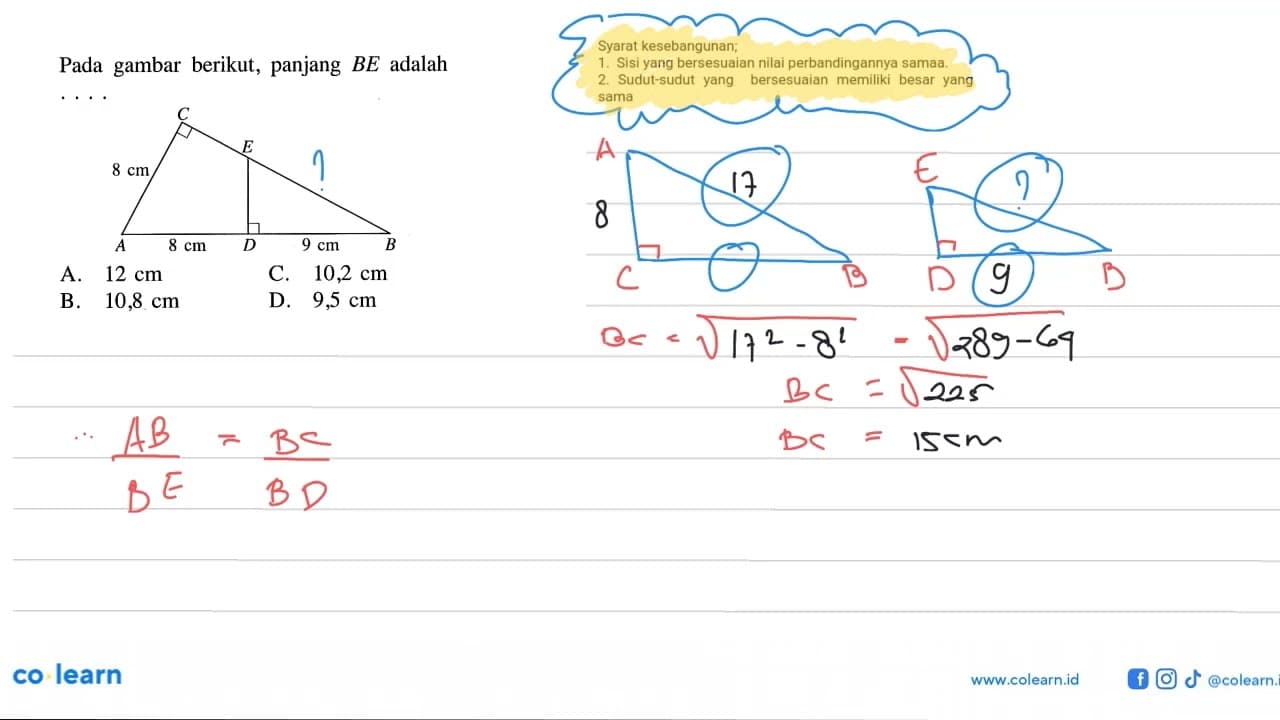 Pada gambar berikut, panjang BE adalah
. . . .
C
E
?
8 cm
A 8 cm D 9 cm B
A. 12 cm C. 10,2 cm
B. 10,8 cm D. 9,5 cm
Syarat kesebangunan;
1. Sisi yang bersesuaian nilai perbandingannya samaa.
2. Sudut-sudut yang bersesuaian memiliki besar yang
sama
A
17
8
C
B
E
?
D
9
B
BC = √17² - 8² = √289-64
BC = √225
BC = 15 cm
∴ AB = BC
BE BD
co learn
www.colearn.id
@colearn.i